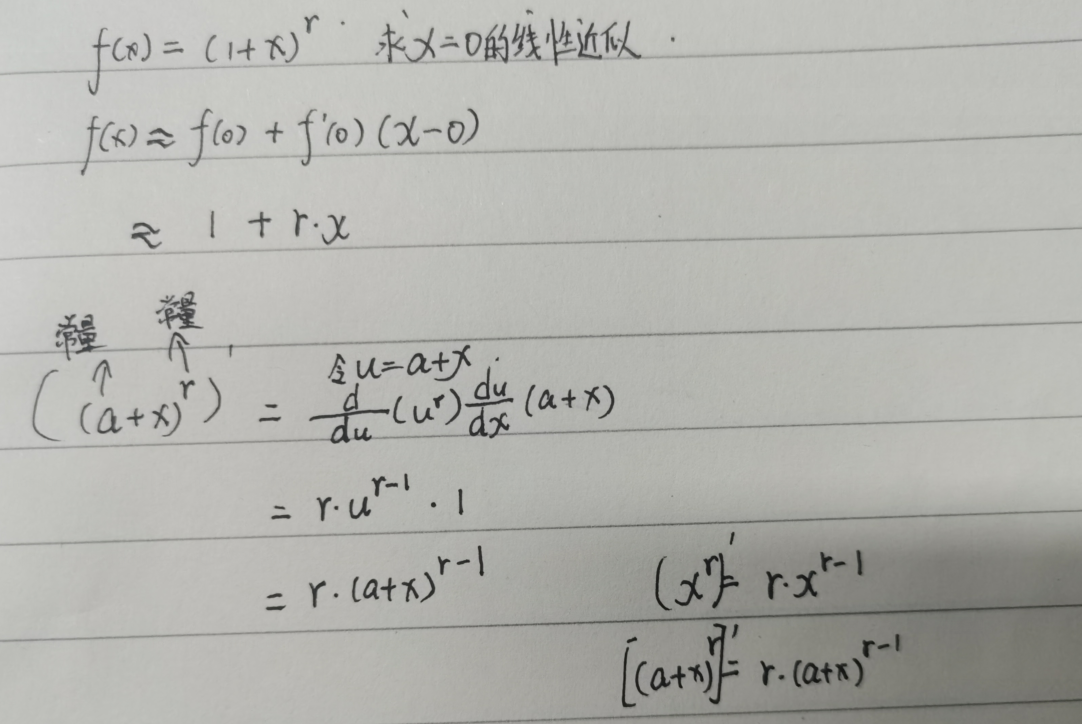 f(x) = (1+x)^r 求x=0的线性近似.
f(x) ≈ f(0) + f'(0)(x-0)
≈ 1 + r·x
常量 常量
↑ ↑
((a+x)^r)' = 令u=a+x. d/du (u^r) du/dx (a+x)
= r·u^{r-1}·1
= r·(a+x)^{r-1} (x^r)' = r·x^{r-1}
[(a+x)^r]' = r·(a+x)^{r-1}